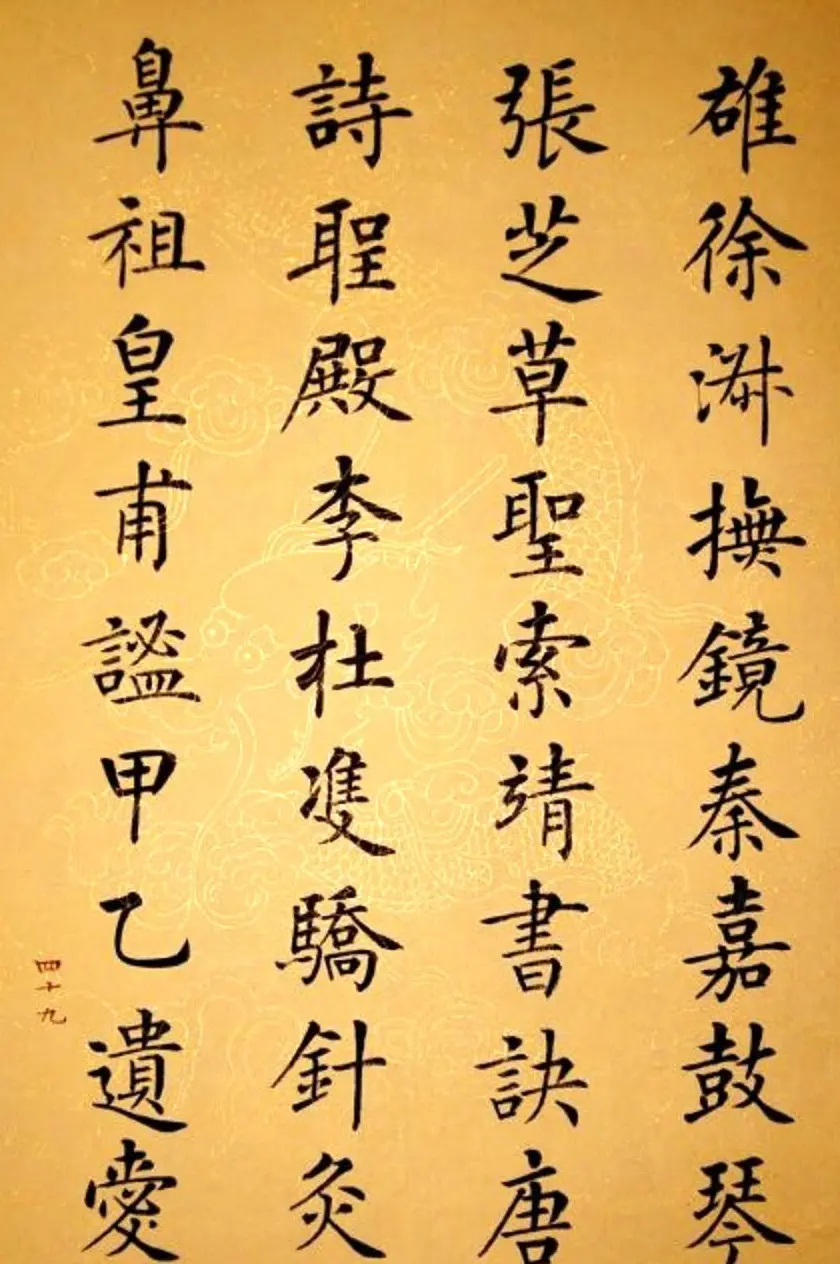 雄徐淑撫鏡秦嘉鼓琴
張芝草聖索靖書訣唐
詩聖殿李杜雙驕針灸
鼻祖皇甫謐甲乙遺愛
四十九